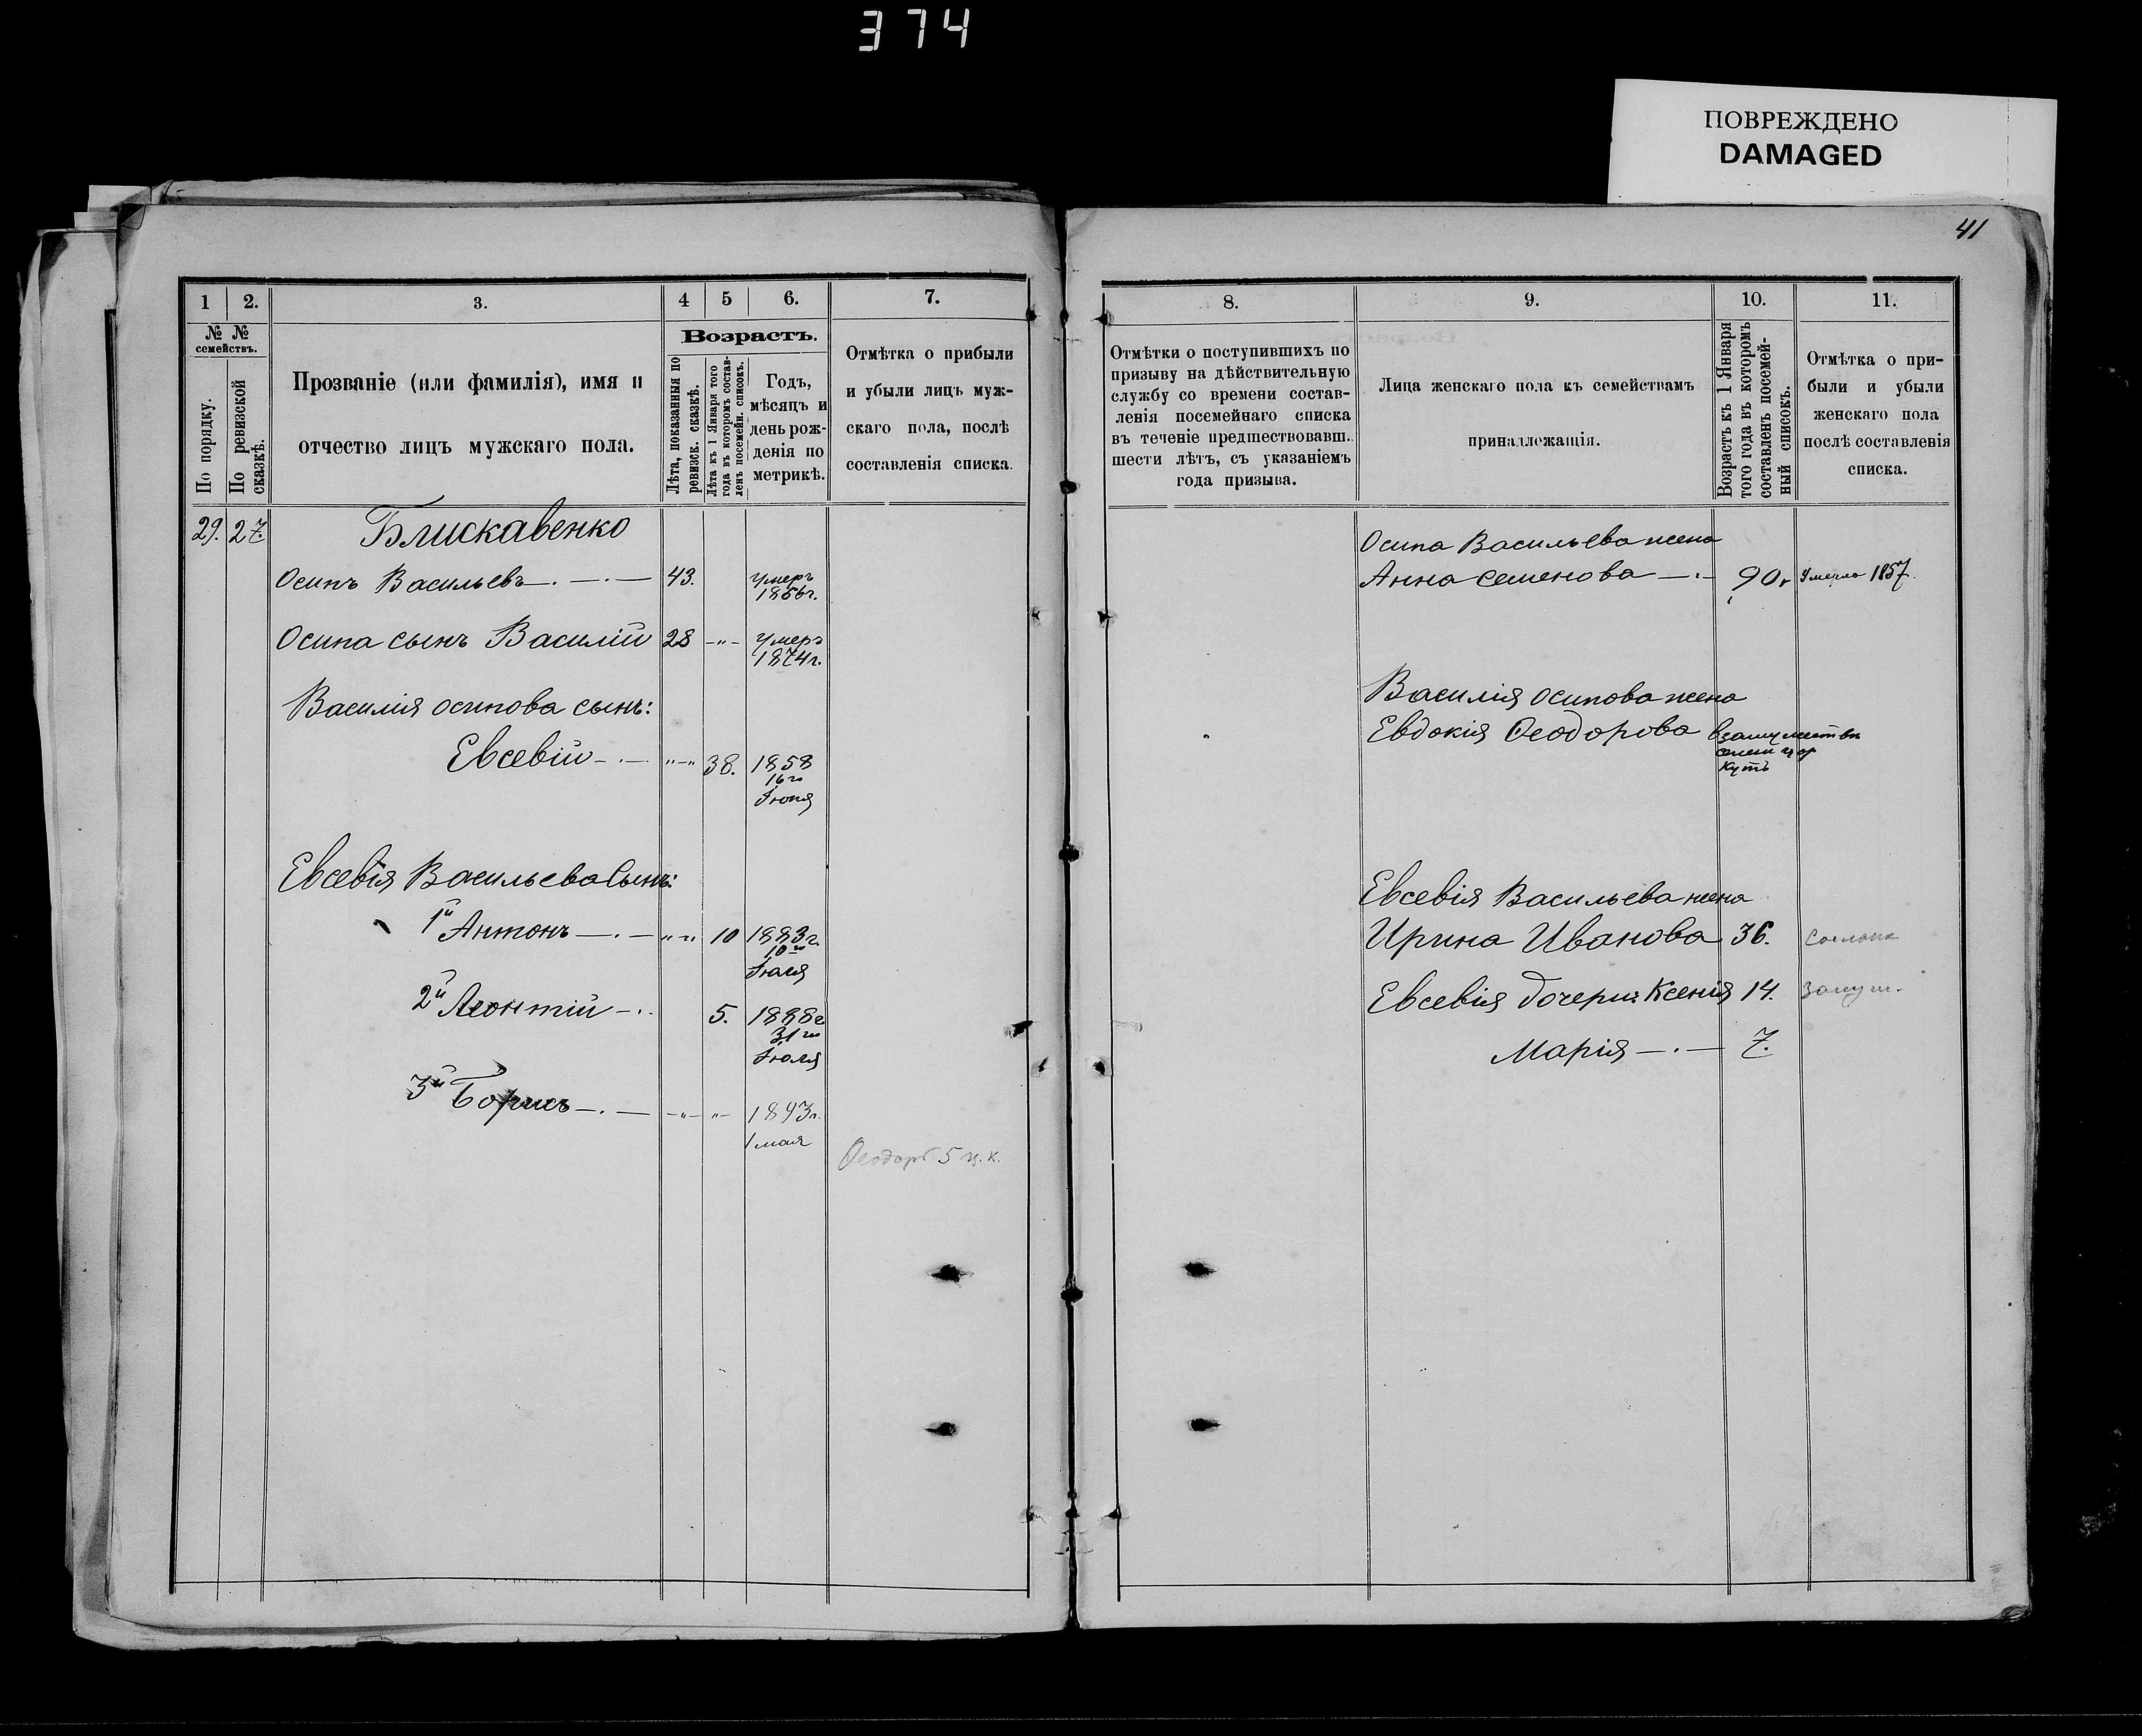 374
ПОВРЕЖДЕНО
DAMAGED
41
1
2.
3.
4
5
6.
7.
№ №
семействъ.
По порядку.
По ревизской
сказкѣ.
Прозваніе (или фамилія), имя и
отчество лицъ мужскаго пола.
Возрастъ.
Лѣта, показанныя по
ревизск. сказкѣ.
Лѣта къ 1 Января того
года въ которомъ состав-
ленъ посемейн. списокъ.
Годъ,
мѣсяцъ и
день рож-
денія по
метрикѣ.
Отмѣтка о прибыли
и убыли лицъ муж-
скаго пола, послѣ
составленія списка.
29. 27.
Блискавенко
Осипъ Васильевъ 43. умеръ
1856г.
Осипа сынъ Василій 28 -"- умеръ
1874г.
Василія Осипова сынъ:
Евсевій "-" 38. 1858
16го
Іюня
Евсевія Васильева сынъ:
1й Антонъ "-" 10 1883г.
10го
Іюля
2й Леонтій 5. 1888г
31го
Іюля
3й Борисъ -"- "- 1893г.
1 мая
Ѳеодоръ 5 ц. к.
8.
9.
10.
11.
Отмѣтки о поступившихъ по
призыву на дѣйствительную
службу со времени состав-
ленія посемейнаго списка
въ теченіе предшествовавш..
шести лѣтъ, съ указаніемъ
года призыва.
Лица женскаго пола къ семействамъ
принадлежащія.
Возрастъ къ 1 Января
того года въ которомъ
составленъ посемей-
ный списокъ.
Отмѣтка о при-
были и убыли
женскаго пола
послѣ составленія
списка.
Осипа Васильева жена
Анна Семенова 90. Умерла 1857.
Василія Осипова жена
Евдокія Ѳеодорова взамужествѣ
кутъ
Евсевія Васильева жена
Ирина Иванова 36.
Евсевія дочери: Ксенія 14. Замуж.
Марія 7.